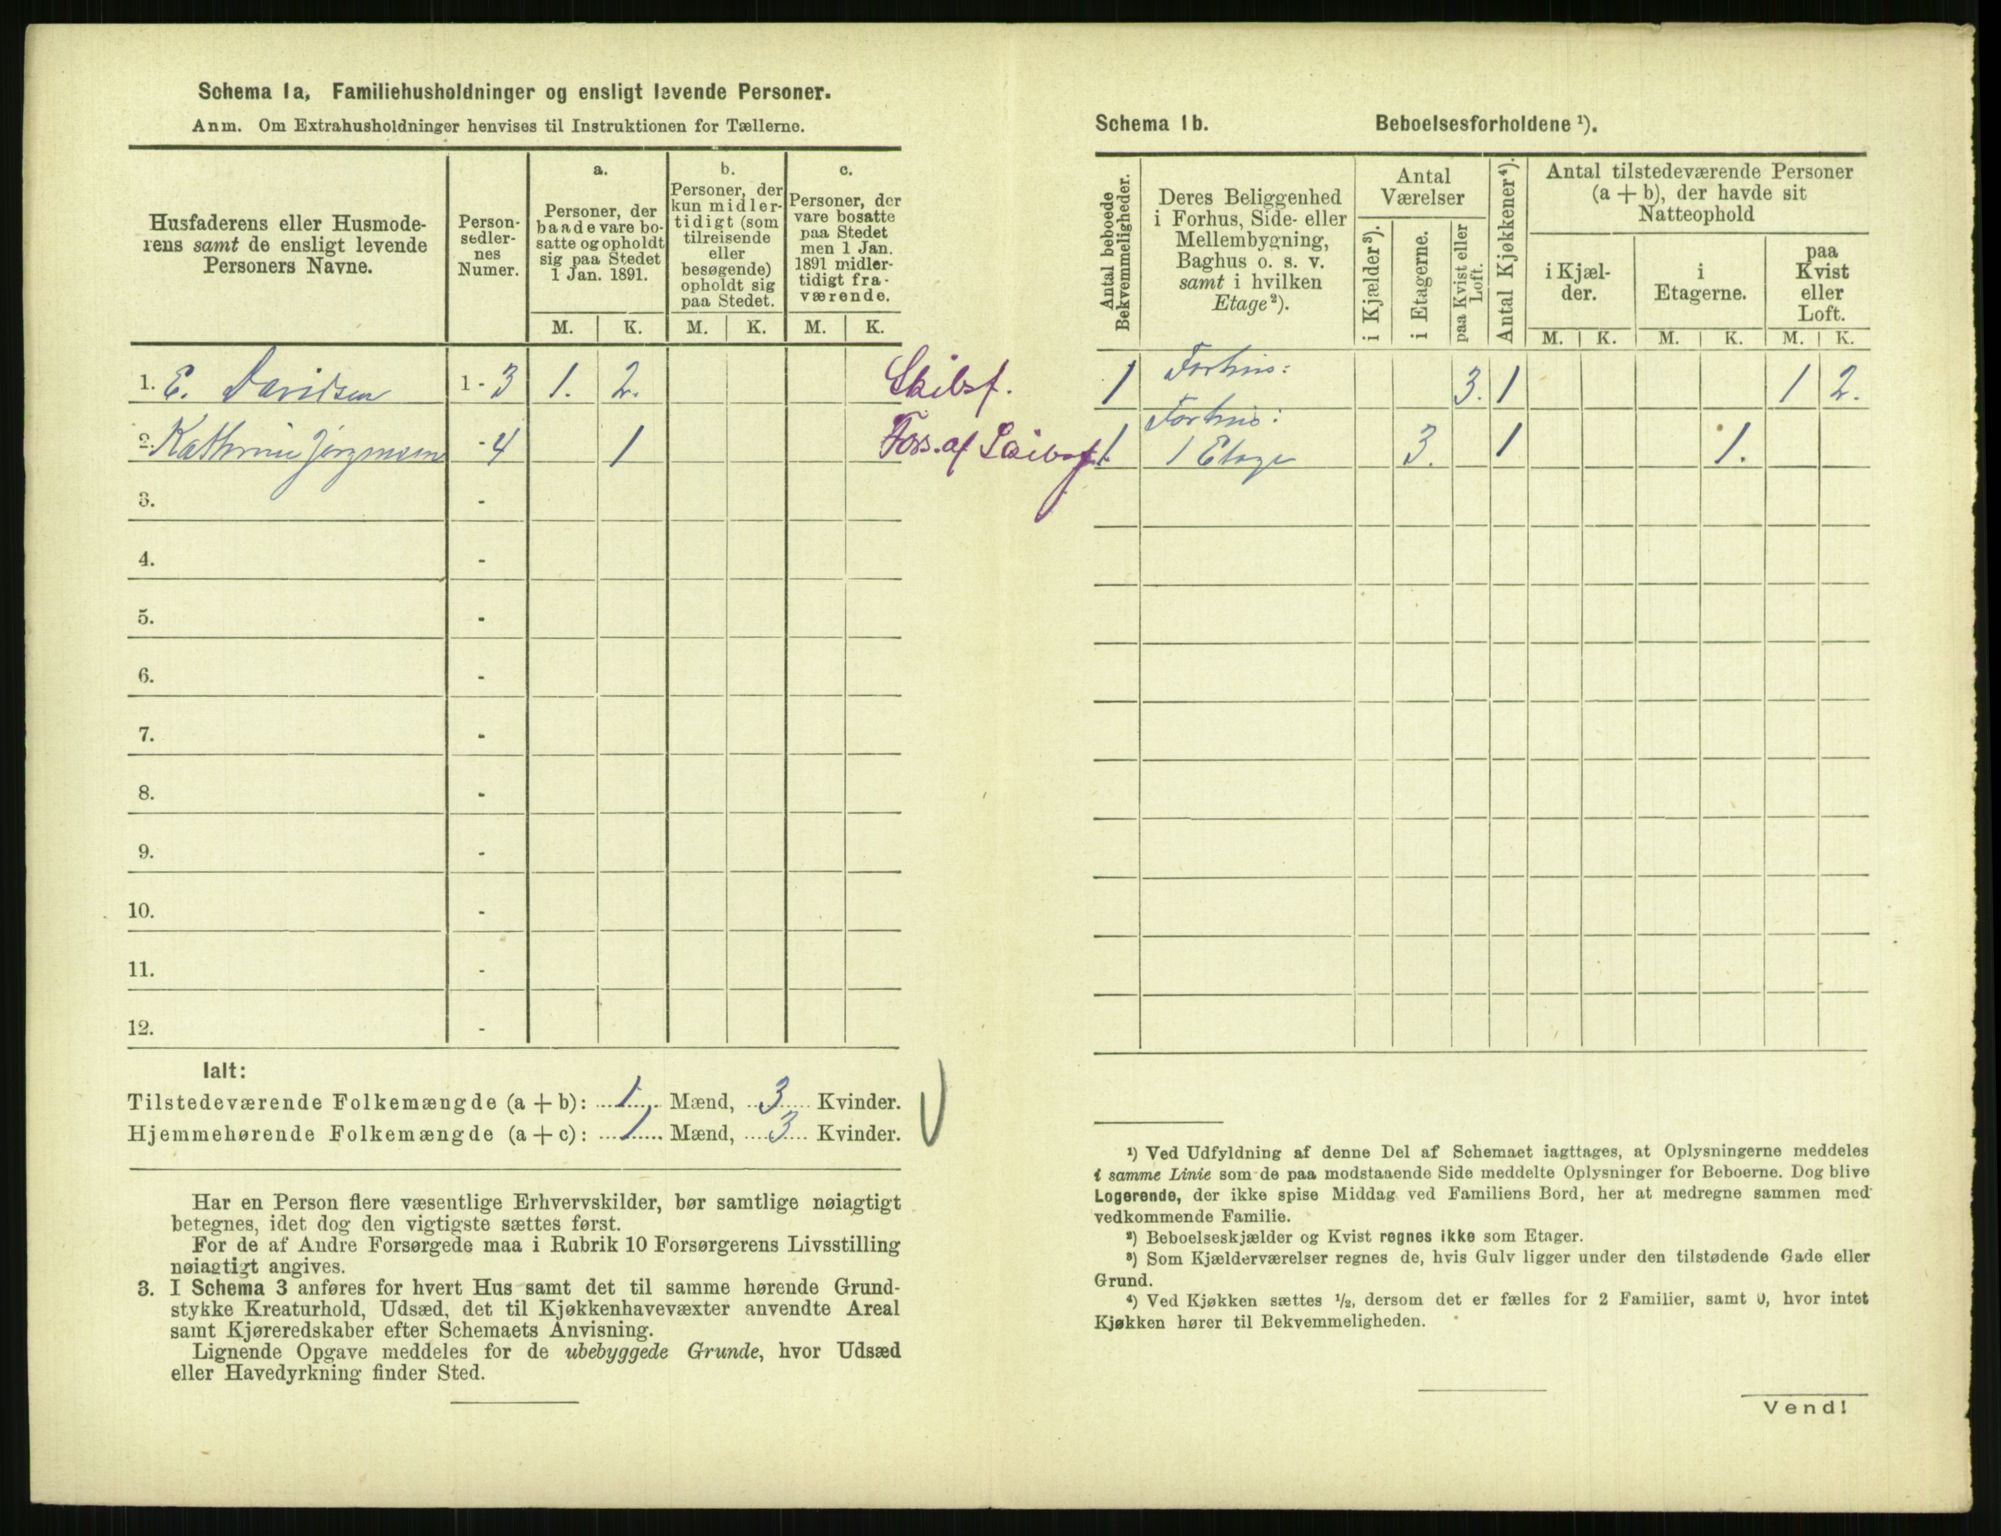 Schema 1a, Familiehusholdninger og ensligt levende Personer.
Anm. Om Extrahusholdninger henvises til Instruktionen for Tællerne.
Husfaderens eller Husmode-
rens samt de ensligt levende
Personers Navne.
Person-
sedler-
nes
Numer.
a.
Personer, der
baade vare bo-
satte og opholdt
sig paa Stedet
1 Jan. 1891.
b.
Personer, der
kun midler-
tidigt (som
tilreisende
eller
besøgende)
opholdt sig
paa Stedet.
c.
Personer, der
vare bosatte
paa Stedet
men 1 Jan.
1891 midler-
tidigt fra-
værende.
M. K. M. K. M. K.
1. E. Davidsen 1 - 3 1. 2. Skibsf.
2. Kathrine Jørgensen - 4 1 Fors. af Skibsf.
3. -
4. -
5. -
6. -
7. -
8. -
9. -
10. -
11. -
12. -
Ialt:
Tilstedeværende Folkemængde (a + b): 1 Mænd, 3 Kvinder.
Hjemmehørende Folkemængde (a + c): 1 Mænd, 3 Kvinder.
Har en Person flere væsentlige Erhvervskilder, bør samtlige nøiagtigt
betegnes, idet dog den vigtigste sættes først.
For de af Andre Forsørgede maa i Rubrik 10 Forsørgerens Livsstilling
nøiagtigt angives.
3. I Schema 3 anføres for hvert Hus samt det til samme hørende Grund-
stykke Kreaturhold, Udsæd, det til Kjøkkenhavevæxter anvendte Areal
samt Kjøreredskaber efter Schemaets Anvisning.
Lignende Opgave meddeles for de ubebyggede Grunde, hvor Udsæd
eller Havedyrkning finder Sted.
Schema 1b. Beboelsesforholdene ¹).
Antal beboede
Bekvemmeligheder.
Deres Beliggenhed
i Forhus, Side- eller
Mellembygning,
Baghus o. s. v.
samt i hvilken
Etage²).
Antal
Værelser
i Kjælder³).
i Etagerne.
paa Kvist eller
Loft.
Antal Kjøkkener⁴).
Antal tilstedeværende Personer
(a + b), der havde sit
Natteophold
i Kjæl-
der.
i
Etagerne.
paa
Kvist
eller
Loft.
M. K. M. K. M. K.
1 Forhus: 3. 1 1 2.
Forhus:
1. 1 Etage 3. 1 1.
¹) Ved Udfyldning af denne Del af Schemaet iagttages, at Oplysningerne meddeles
i samme Linie som de paa modstaaende Side meddelte Oplysninger for Beboerne. Dog blive
Logerende, der ikke spise Middag ved Familiens Bord, her at medregne sammen med
vedkommende Familie.
²) Beboelseskjælder og Kvist regnes ikke som Etager.
³) Som Kjælderværelser regnes de, hvis Gulv ligger under den tilstødende Gade eller
Grund.
⁴) Ved Kjøkken sættes ½, dersom det er fælles for 2 Familier, samt 0, hvor intet
Kjøkken hører til Bekvemmeligheden.
Vend!